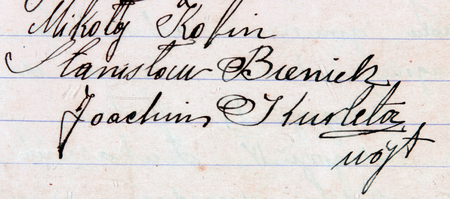 Mikołaj Kobin
Stanisław Bieniek
Joachim Kurleta
wójt